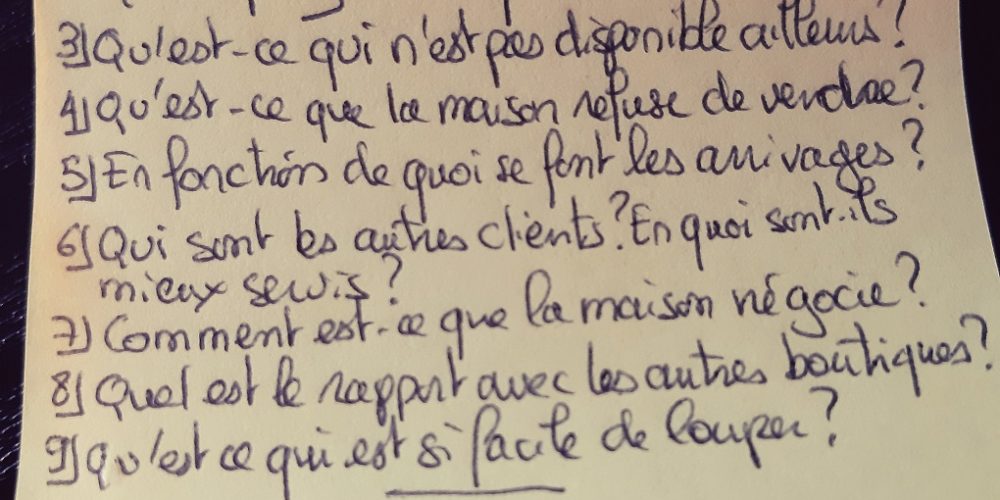 3) Qu'est-ce qui n'est pas disponible ailleurs ?
4) Qu'est-ce que la maison refuse de vendre ?
5) En fonction de quoi se font les arrivages ?
6) Qui sont les autres clients ? En quoi sont-ils
mieux servis ?
7) Comment est-ce que la maison négocie ?
8) Quel est le rapport avec les autres boutiques ?
9) Qu'est ce qui est si facile de louper ?